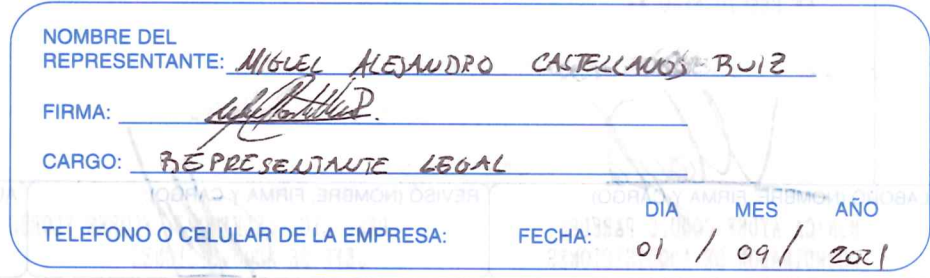 NOMBRE DEL
REPRESENTANTE: MIGUEL ALEJANDRO CASTELLANOS RUIZ
FIRMA:
CARGO: REPRESENTANTE LEGAL
DIA MES AÑO
TELEFONO O CELULAR DE LA EMPRESA: FECHA: 01 / 09 / 2021